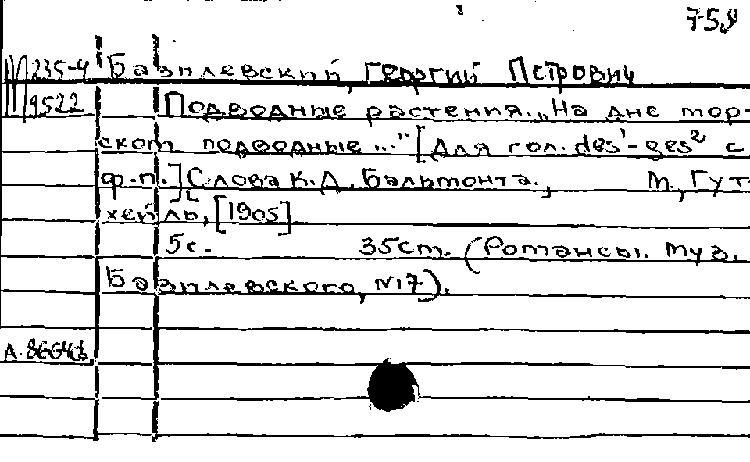 759
М 235-4 Базилевский, Георгий Петрович
9522 Подводные растения. „На дне мор-
ском подводные ..." [Для гол. des¹-ges² с
ф-п.] Слова К.Д. Бальмонта., М., Гут-
хейль, [1905].
5с. 35см. (Романсы. Муз.
Базилевского, №17).